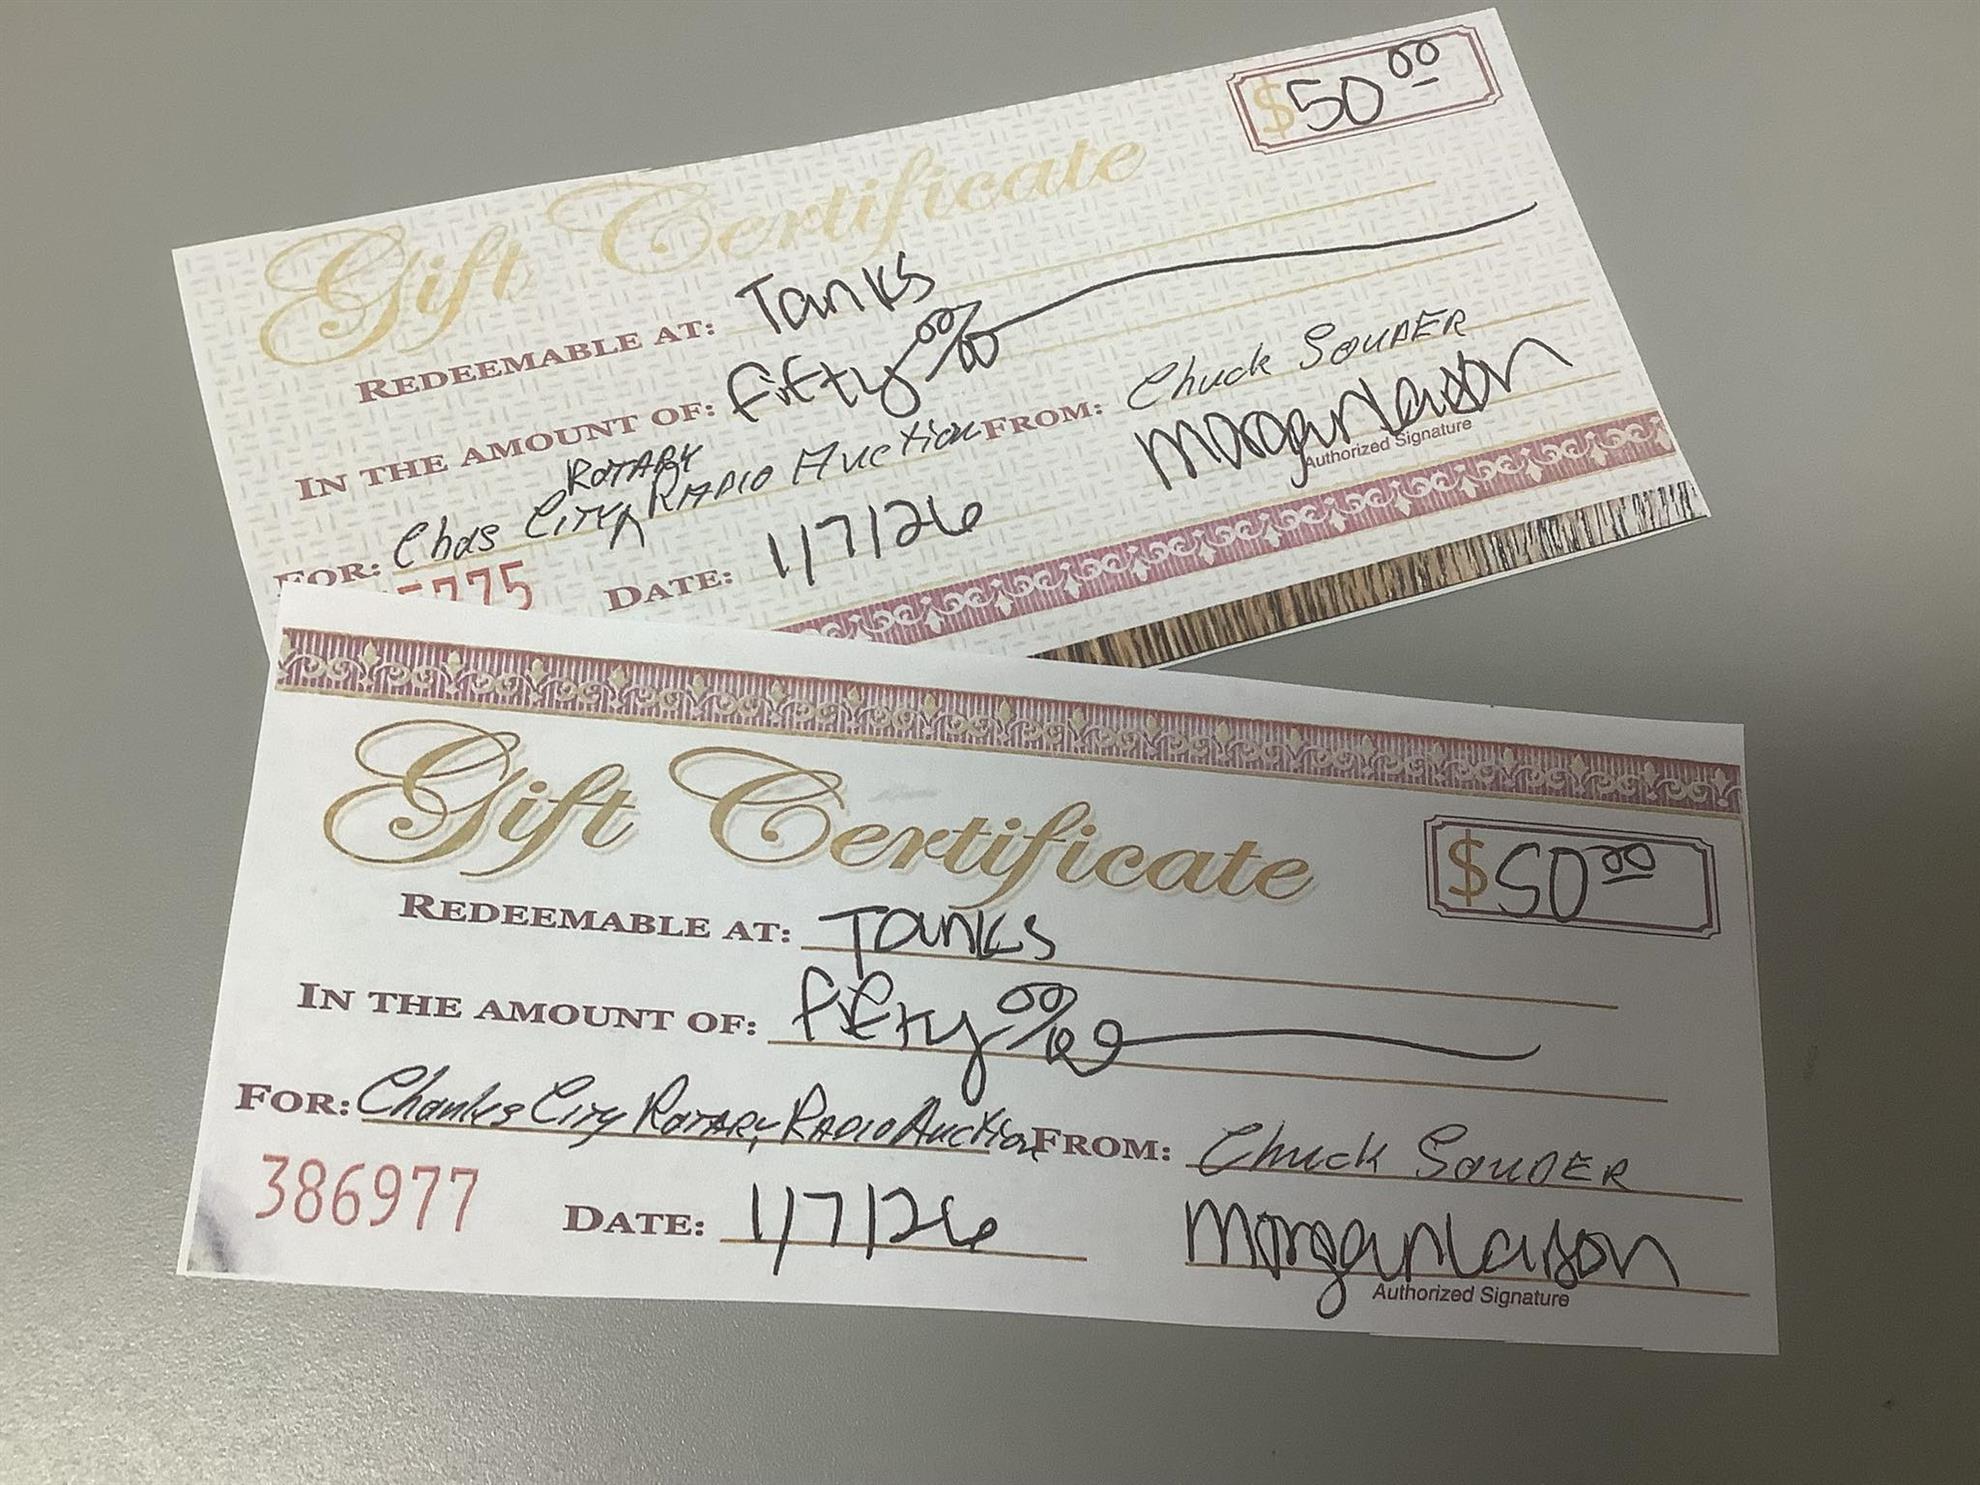 Gift Certificate
$50.00
REDEEMABLE AT: Tanks
IN THE AMOUNT OF: fifty 00/00
FOR: Chas City ROTARY RADIO Auction FROM: Chuck SOUDER
775 DATE: 1/7/26 Morgan Larson
Authorized Signature
Gift Certificate
$50.00
REDEEMABLE AT: Tanks
IN THE AMOUNT OF: fifty 00/00
FOR: Charles City ROTARY RADIO Auction FROM: Chuck SOUDER
386977 DATE: 1/7/26 Morgan Larson
Authorized Signature